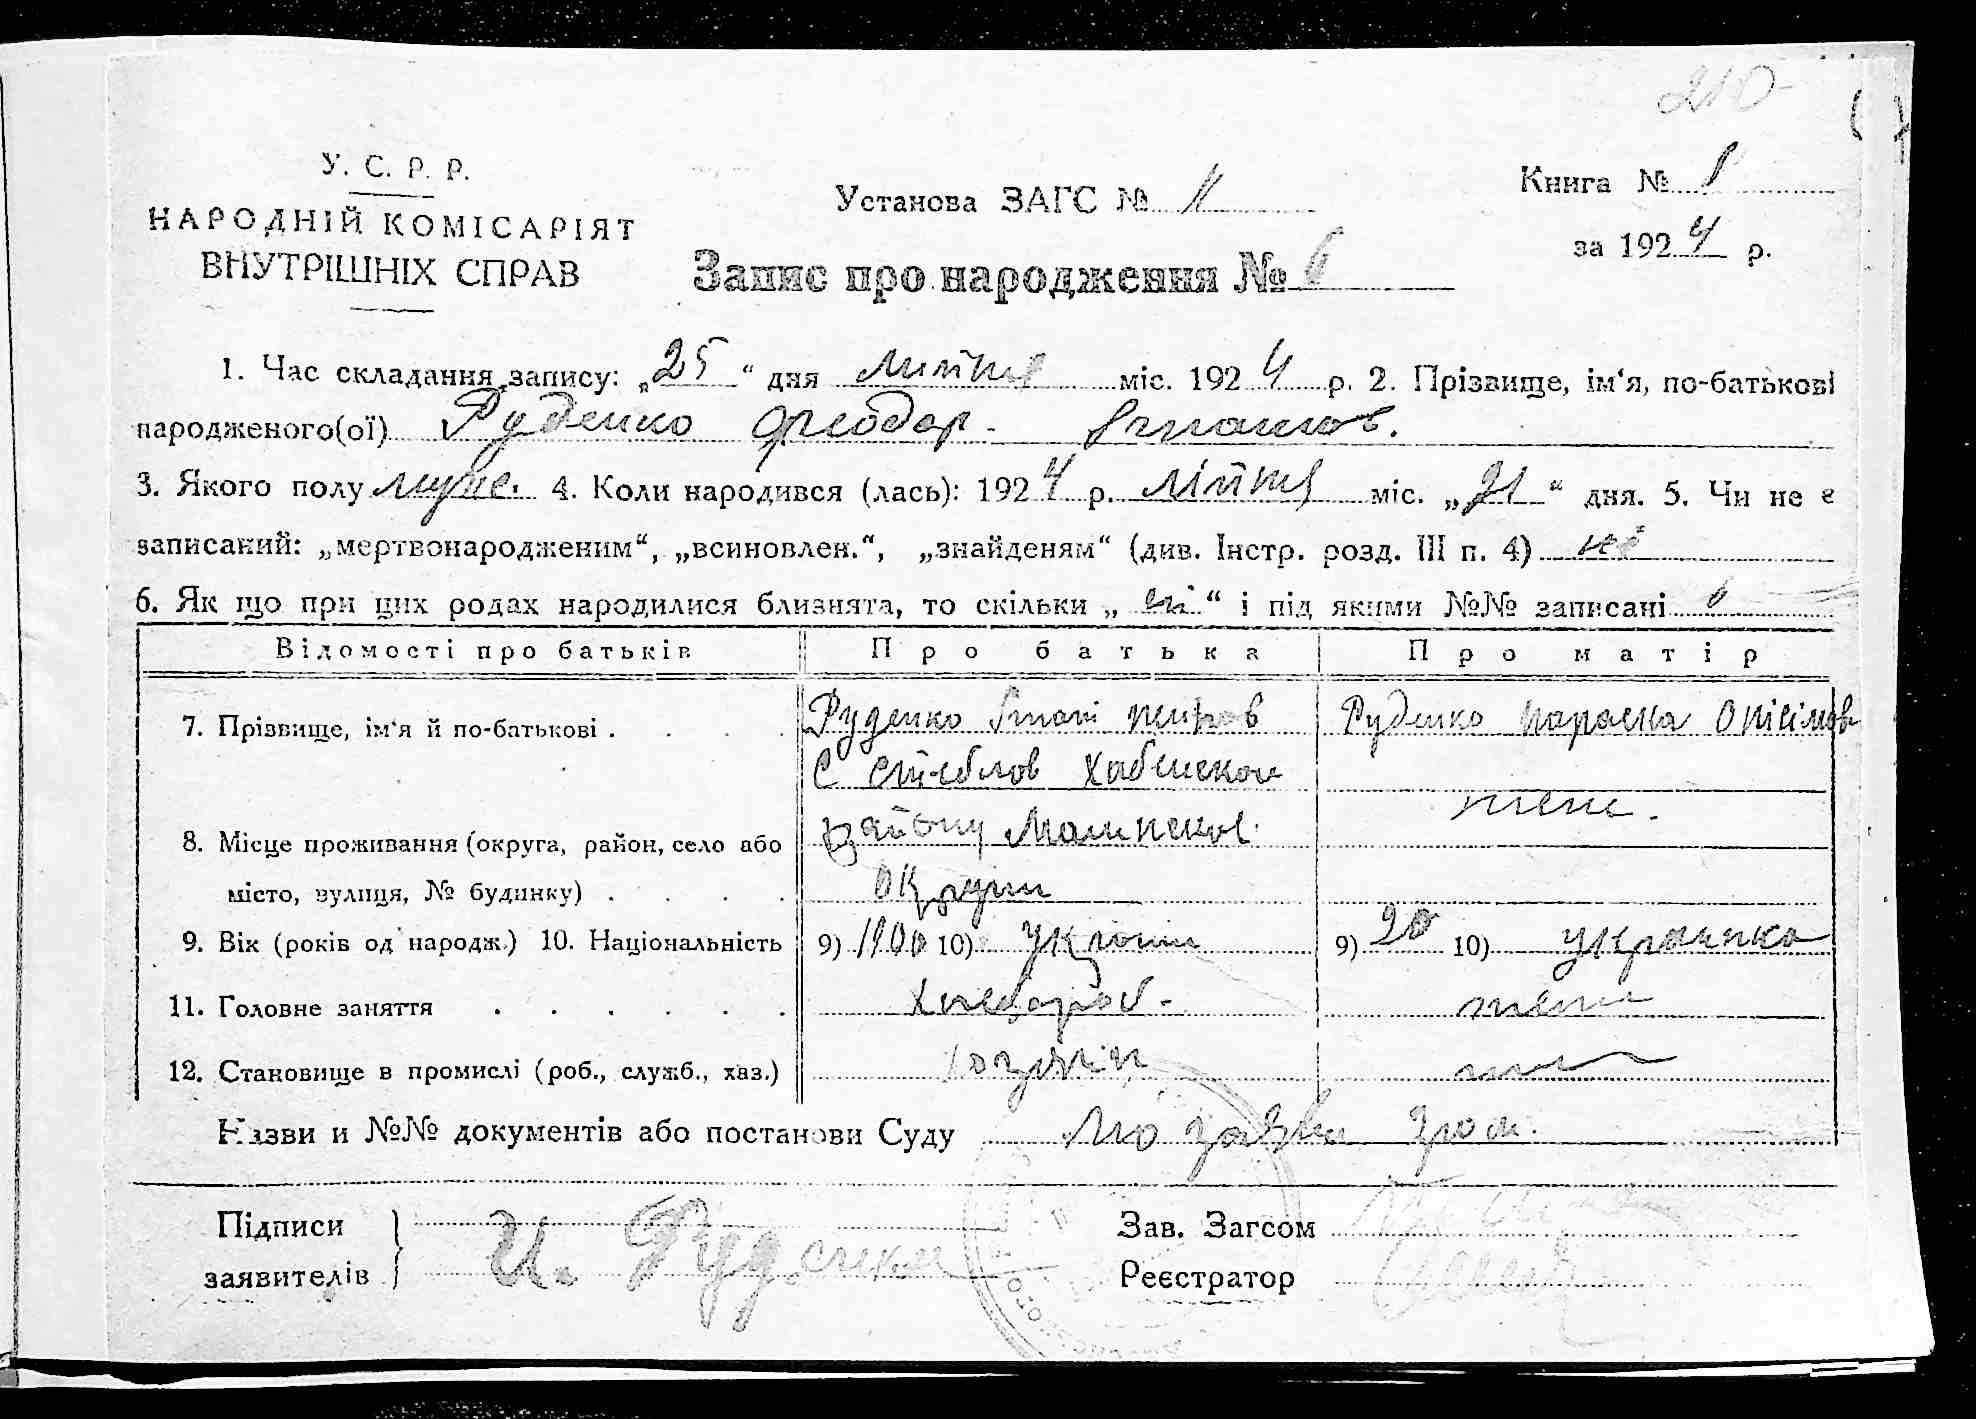 210
У. С. Р. Р.
НАРОДНІЙ КОМІСАРІЯТ
ВНУТРІШНІХ СПРАВ
Установа ЗАГС №
Книга № 1
за 1924 р.
Запис про народження № 6
1. Час складання запису: „25“ дня липня міс. 1924 р. 2. Прізвище, ім‘я, по-батькові
народженого(ої) Руденко Феодор Ігнатов.
3. Якого полу муже. 4. Коли народився (лась): 1924 р. липня міс. „21“ дня. 5. Чи не є
записаний: „мертвонародженим“, „всиновлен.“, „знайденям“ (див. Інстр. розд. III п. 4) ні
6. Як що при цих родах народилися близнята, то скільки „ні“ і під якими №№ записані
Відомості про батьків Про батька Про матір
7. Прізвище, ім‘я й по-батькові . . . . Руденко Ігнат Петров Руденко Параска Онісімов
С Стеблов Хабенском
теж.
8. Місце проживання (округа, район, село або району Малинской
місто, вулиця, № будинку) . . . . округи
9. Вік (років од народж.) 10. Національність 9) 1900 10) Україн 9) 20 10) українка
11. Головне заняття . . . . . . Хлебороб теж
12. Становище в промислі (роб., служб., хаз.) хозяїн
Назви и №№ документів або постанови Суду По заяви гром.
Підписи
заявителів
И. Руденко
Зав. Загсом
Реєстратор